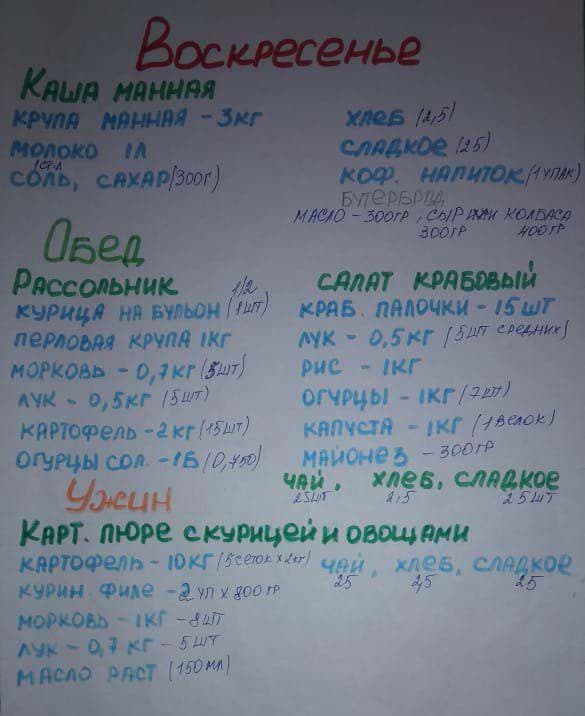 Воскресенье
Каша манная
крупа манная - 3кг
молоко 1л
1ст.л
соль, сахар (300г)
хлеб (2,5)
сладкое (25)
коф. напиток (1 упак)
бутерброд
масло - 300гр, сыр или колбаса
300гр 400гр
Обед
Рассольник
1/2
курица на бульон (1шт)
перловая крупа 1кг
морковь - 0,7кг (5шт)
лук - 0,5кг (5шт)
картофель - 2кг (15шт)
огурцы сол. - 1б (0,750)
салат крабовый
краб. палочки - 15шт
лук - 0,5кг (5шт средних)
рис - 1кг
огурцы - 1кг (7шт)
капуста - 1кг (1 велок)
майонез - 300гр
чай, хлеб, сладкое
25шт 2,5 25шт
Ужин
Карт. пюре с курицей и овощами
картофель - 10кг (5сеток х 2кг)
курин. филе - 2уп х 800гр
морковь - 1кг - 8шт
лук - 0,7кг - 5шт
масло раст (150мл)
чай, хлеб, сладкое
25 2,5 25